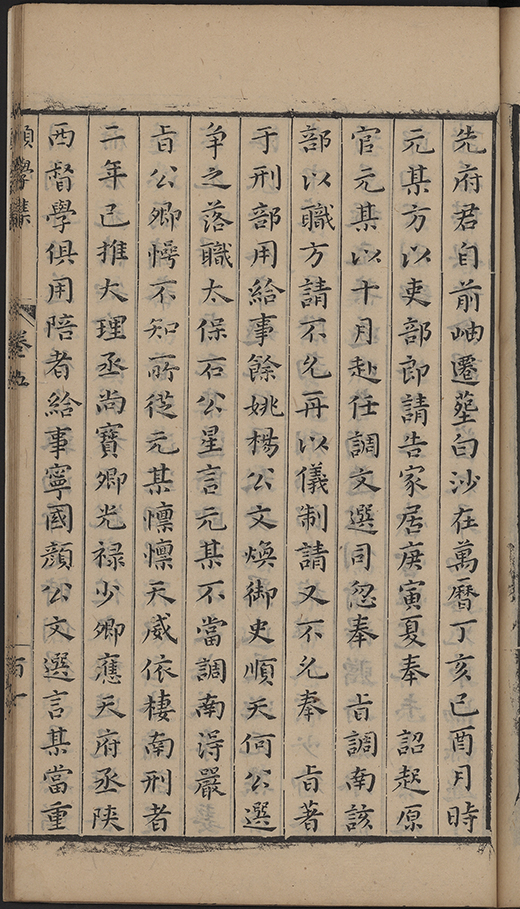 先府君自前岫遷塋白沙在萬曆丁亥己酉月時
元某方以吏部郎請告家居庚寅夏奉 詔起原
官元某以十月赴任調文選司忽奉 旨調南該
部以職方請不允再以儀制請又不允奉 旨著
于刑部用給事餘姚楊公文煥御史順天何公選
爭之落職太保石公星言元某不當調南得嚴
旨公卿愕不知所從元某懍懍天威依棲南刑者
二年已推大理丞尚寶卿光祿少卿應天府丞陝
西督學俱用陪者給事寧國顏公文選言某當重
願學集
卷
百一